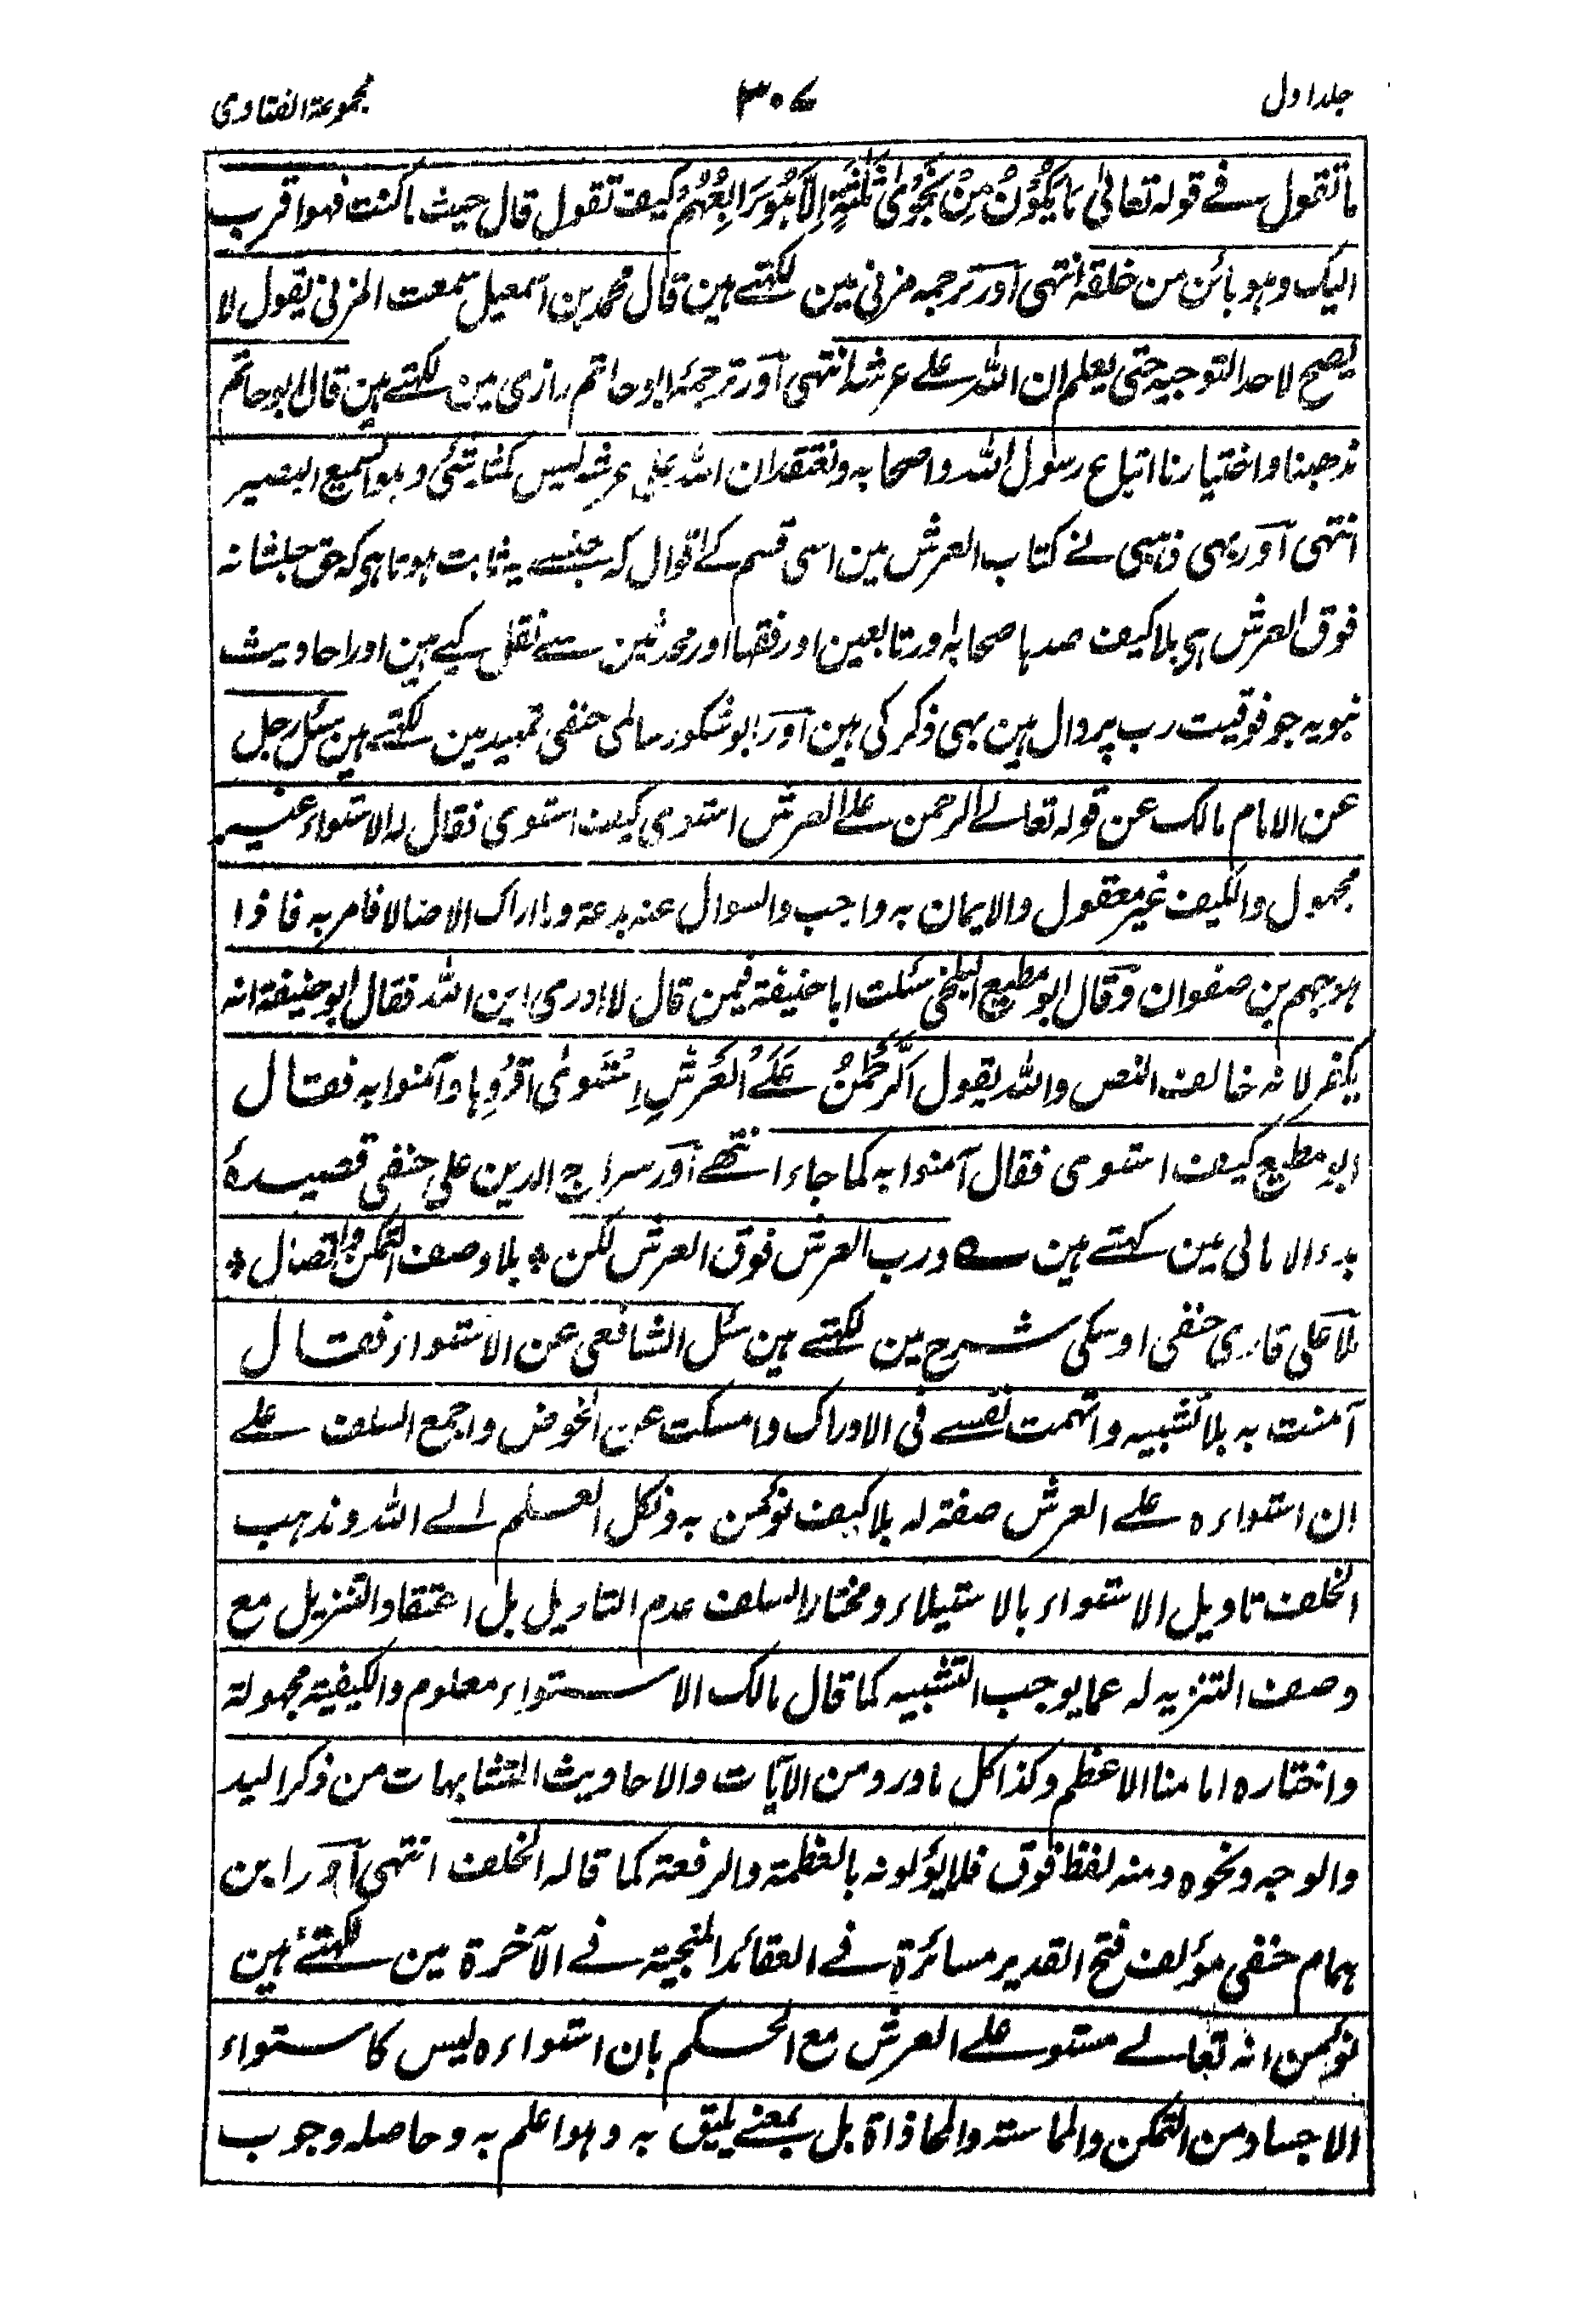 جلد اول ۳۰۷ مجموعۃ الفتاوی
ما تقول فے قولہ تعالیٰ مَا یَکُوْنُ مِنْ نَجْوٰی ثَلٰثَۃٍ اِلَّا ہُوَ رَابِعُہُمْ کیف تقول قال حیث ما کنت فہو اقرب
الیک وہو بائن من خلقہ انتہی اور ترجمہ مزنی مین لکھتے ہین قال محمد بن اسمعیل سمعت المزنی یقول لا
یصح لاحد التوحید حتی یعلم ان اللہ علے عرشہ انتہی اور ترجمۂ ابو حاتم رازی مین لکھتے ہین قال ابو حاتم
مذہبنا واختیارنا اتباع رسول اللہ واصحابہ ونعتقد ان اللہ علی عرشہ لیس کمثلہ شئی وہو السمیع البصیر
انتہی اور بھی ذہبی نے کتاب العرش مین اسی قسم کے اقوال کہ جنسے یہ ثابت ہوتا ہی کہ حق جلشانہ
فوق العرش ہی بلا کیف صدہا صحابہ اور تابعین اور فقہا اور محدثین سے نقل کیے ہین اور احادیث
نبویہ جو فوقیت رب پر دال ہین بھی ذکر کی ہین اور ابو شکور سالمی حنفی تمہید مین لکھتے ہین سئل رجل
عن الامام مالک عن قولہ تعالے الرحمن علے العرش استوی کیف استوی فقال لہ الاستواء غیر
مجہول والکیف غیر معقول والایمان بہ واجب والسوال عنہ بدعۃ وما اراک الا ضالا فامر بہ فاذا
ہو جہم بن صفوان وقال ابو مطیع البلخی سئلت ابا حنیفۃ فیمن قال لا ادری این اللہ فقال ابو حنیفۃ انہ
یکفر لانہ خالف النص واللہ یقول اَلرَّحْمٰنُ عَلَے الْعَرْشِ اسْتَوٰی اقرؤہا وآمنوا بہ فقال
ابو مطیع کیف استوی فقال آمنوا بہ کما جاء انتھے اور سراج الدین علی حنفی قصیدۂ
بدء الامالی مین کہتے ہین ؎ ورب العرش فوق العرش لکن * بلا وصف التمکن واتصال *
ملا علی قاری حنفی اوسکی شرح مین لکھتے ہین سئل الشافعی عن الاستواء فقال
آمنت بہ بلا تشبیہ واتہمت نفسے فی الادراک وامسکت عن الخوض واجمع السلف علے
ان استواءہ علے العرش صفۃ لہ بلا کیف نؤمن بہ ونکل العلم الے اللہ وذہب
الخلف تاویل الاستواء بالاستیلاء ومختار السلف عدم التاویل بل اعتقاد التنزیل مع
وصف التنزیہ لہ عما یوجب التشبیہ کما قال مالک الاستواء معلوم والکیفیۃ مجہولۃ
واختارہ امامنا الاعظم وکذا کل ما ورد من الآیات والاحادیث المتشابہات من ذکر الید
والوجہ ونحوہ ومنہ لفظ فوق فلا یؤلونہ بالعظمۃ والرفعۃ کما قالہ الخلف انتہی اور ابن
ہمام حنفی مؤلف فتح القدیر مسائرۃ فے العقائد المنجیۃ فے الآخرۃ مین لکھتے ہین
نؤمن انہ تعالے مستو علے العرش مع الحکم بان استواءہ لیس کاستواء
الاجساد من التمکن والمماستہ والمحاذاۃ بل بمعنے یلیق بہ وہو اعلم بہ وحاصلہ وجوب